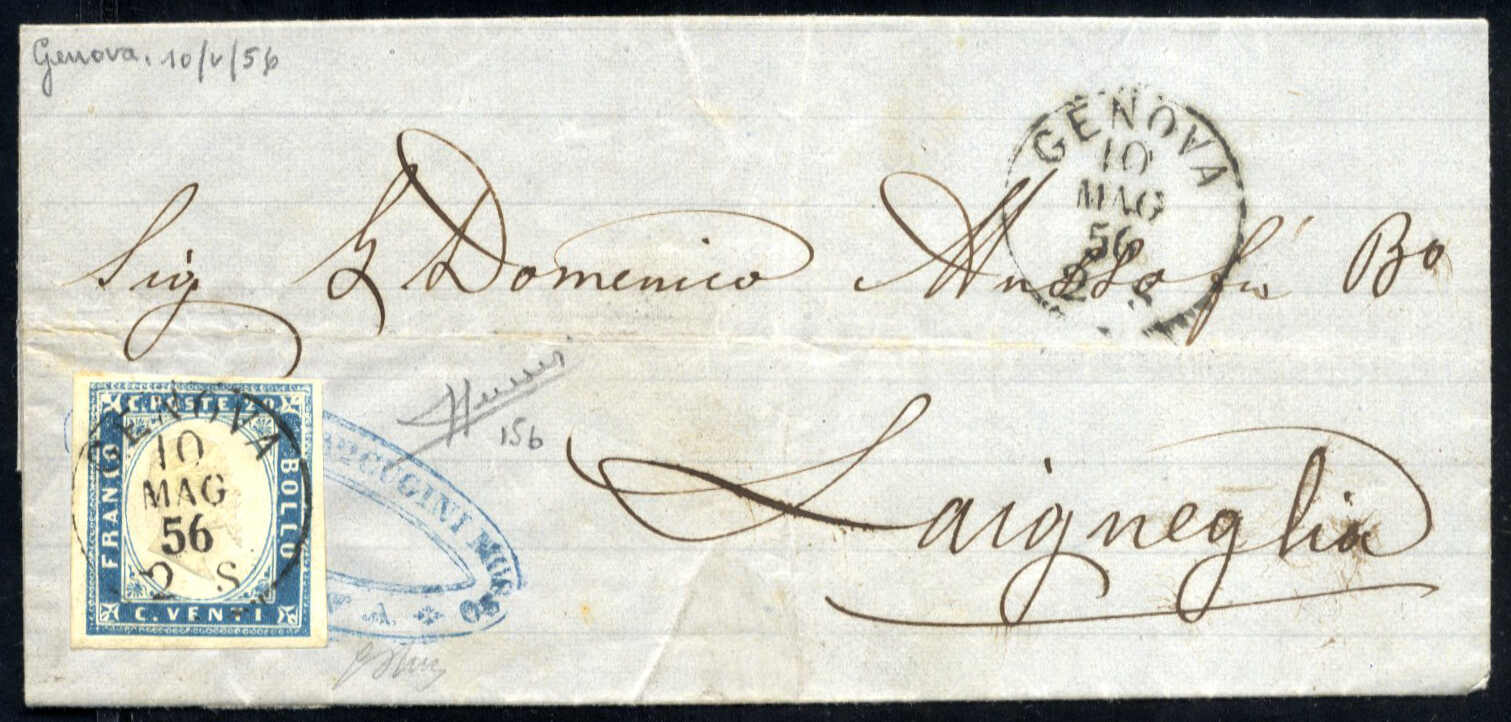 Genova. 10/V/56
GENOVA
10
MAG
56
2 S
Sig Domenico fú Bo
Laigneglia
156
C. POSTE 20
FRANCO
BOLLO
C. VENTI
GENOVA
10
MAG
56
2 S
CUGINI